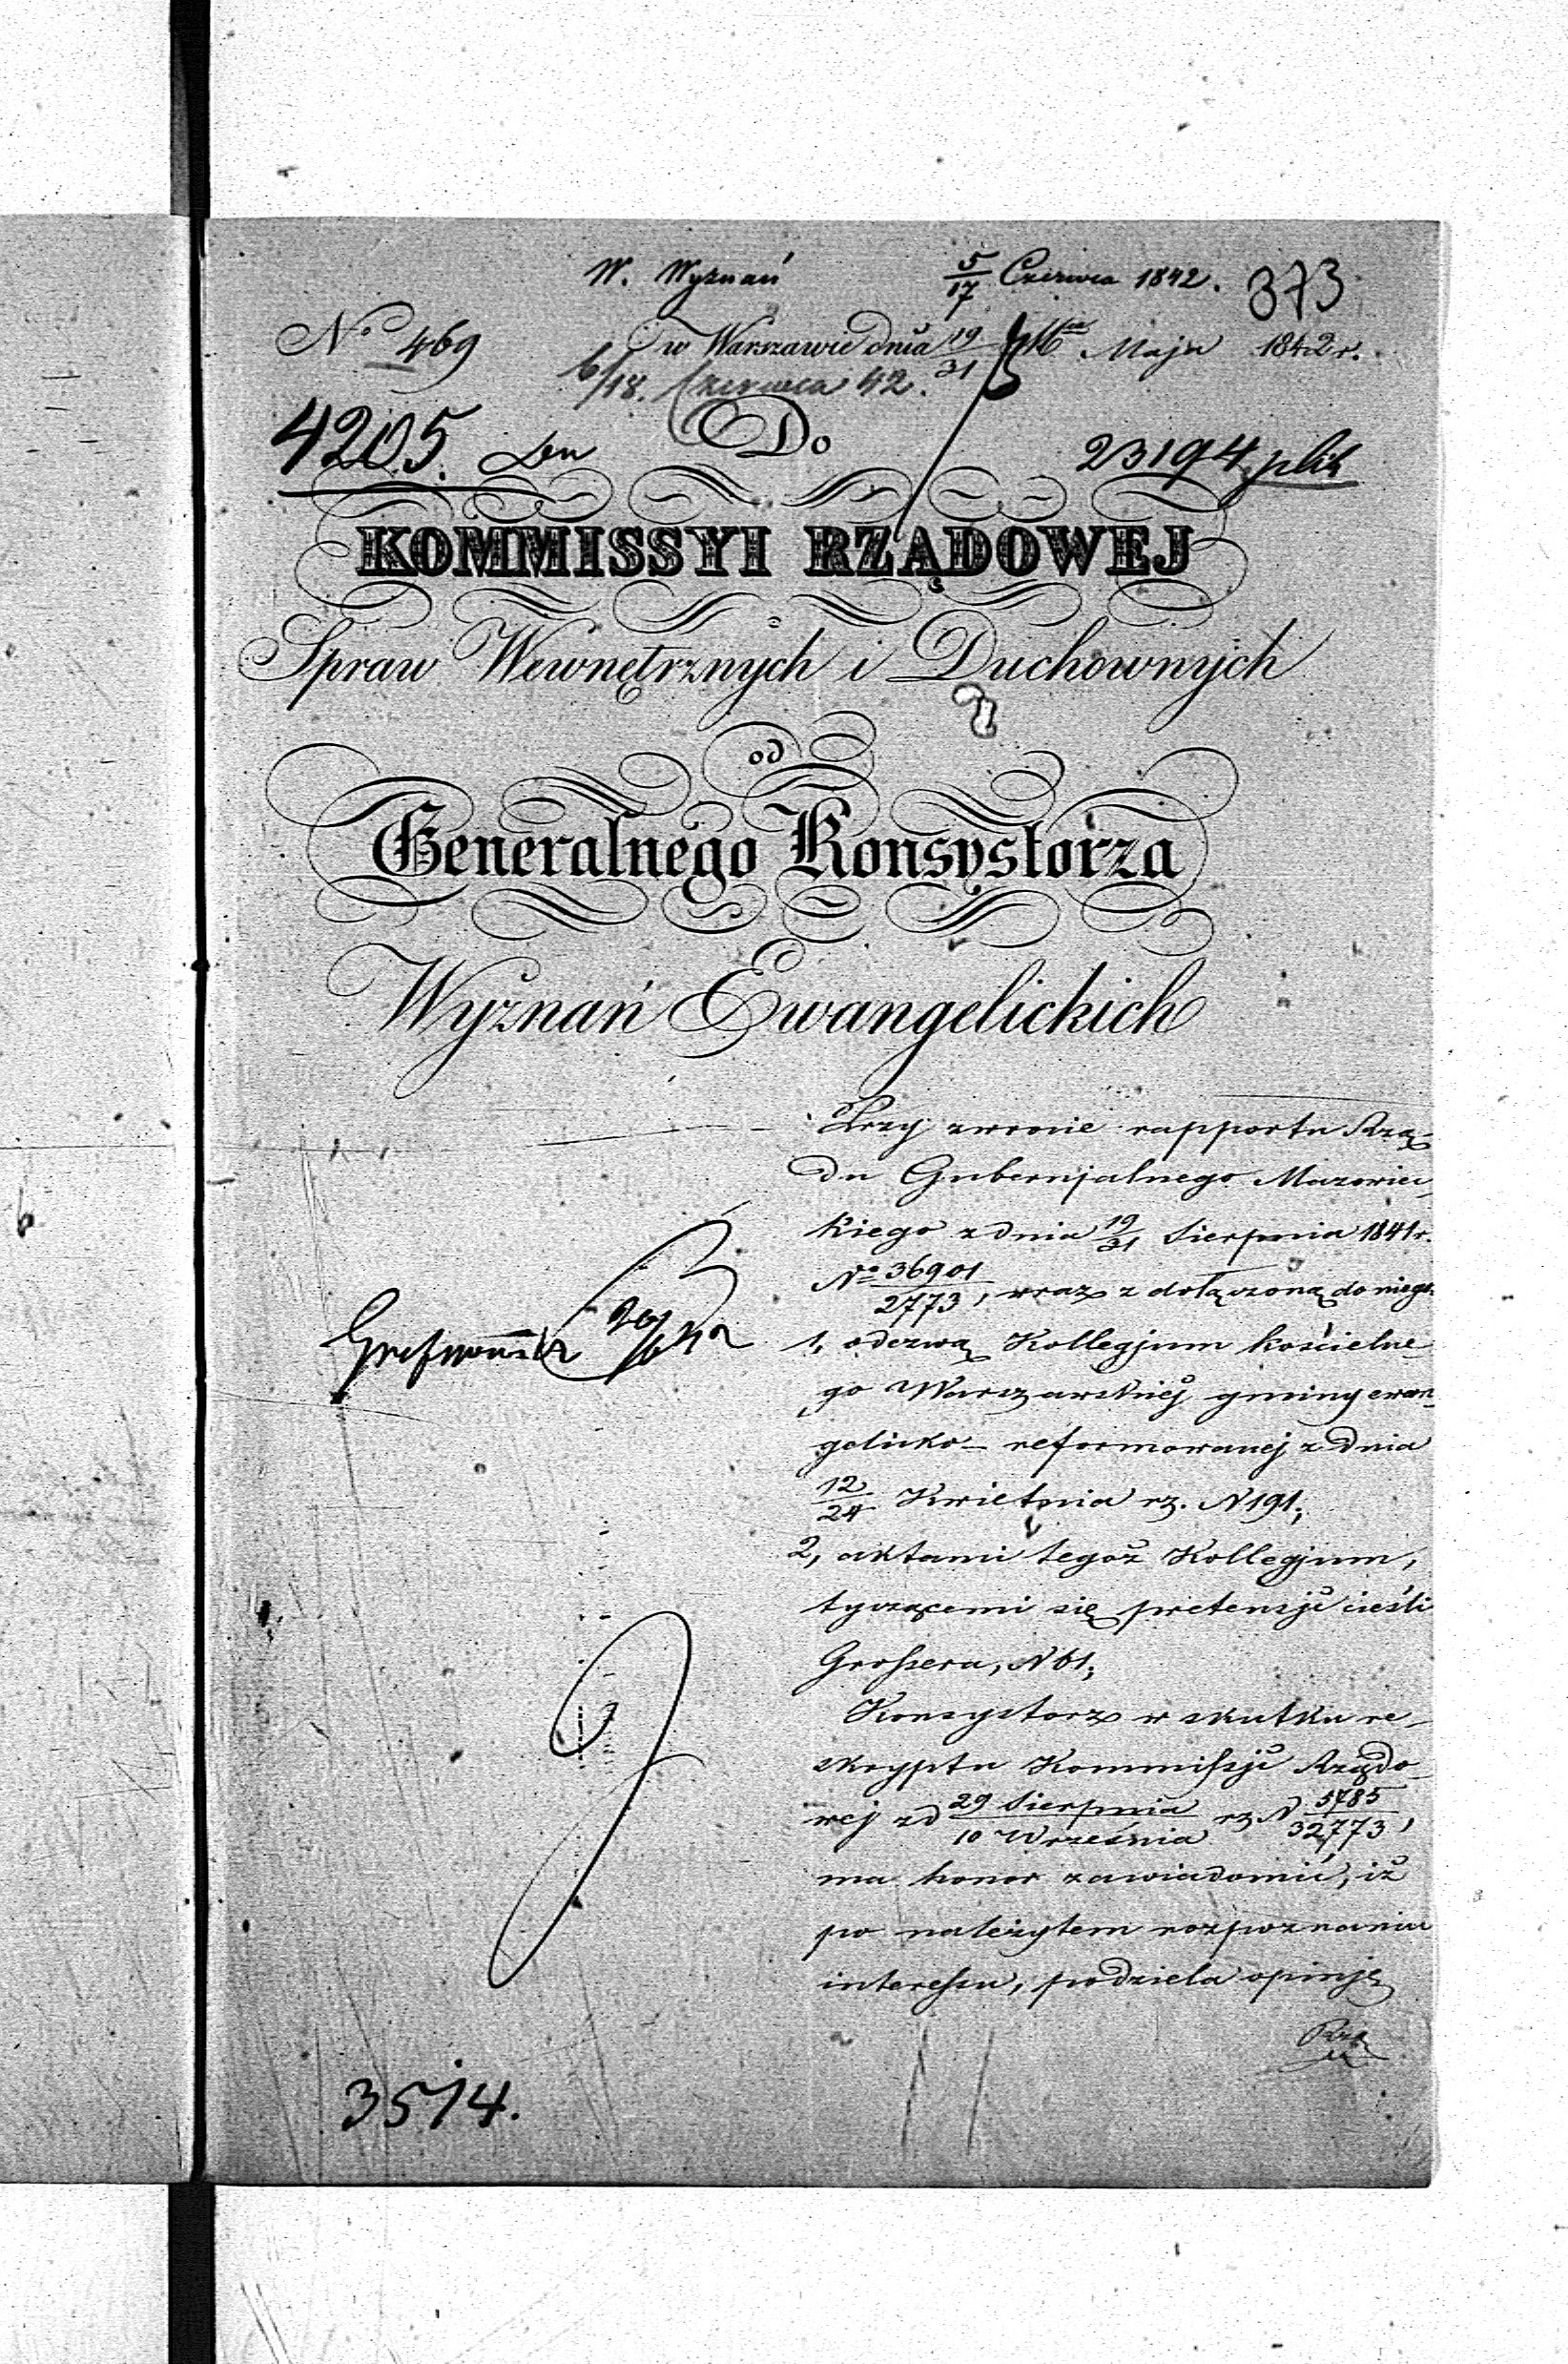 W. Wyznań 5/17 Czerwca 1842. 373
No 469 w Warszawie dnia 19/31 Maja 1842 r.
6/18. Czerwca 42.
4205. Do 23194 plik
KOMMISSYI RZĄDOWEJ
Spraw Wewnętrznych i Duchownych
od
Generalnego Konsystorza
Wyznań Ewangelickich
Przy zwrocie rapportu Rzą-
du Gubernjalnego Mazowiec-
kiego z dnia 19/31 Sierpnia 1841 r.
No 36901/2773, wraz z dołączoną do niego
1, odezwą Kollegjum kościelne-
go Warszawskiéj gminy ewan-
gelicko-reformowanej z dnia
12/24 Kwietnia rz. N 191;
2, aktami tegoż Kollegjum,
tyczącemi się pretensji cieśli
Grossera, N 61;
Konsystorz w skutku re-
skryptu Kommissji Rządo-
wej z d 29 Sierpnia/10 Września rz N 5785/32773,
ma honor zawiadomić, iż
po należytem rozpoznaniu
interessu, podziela opinję
Rzą
3514.